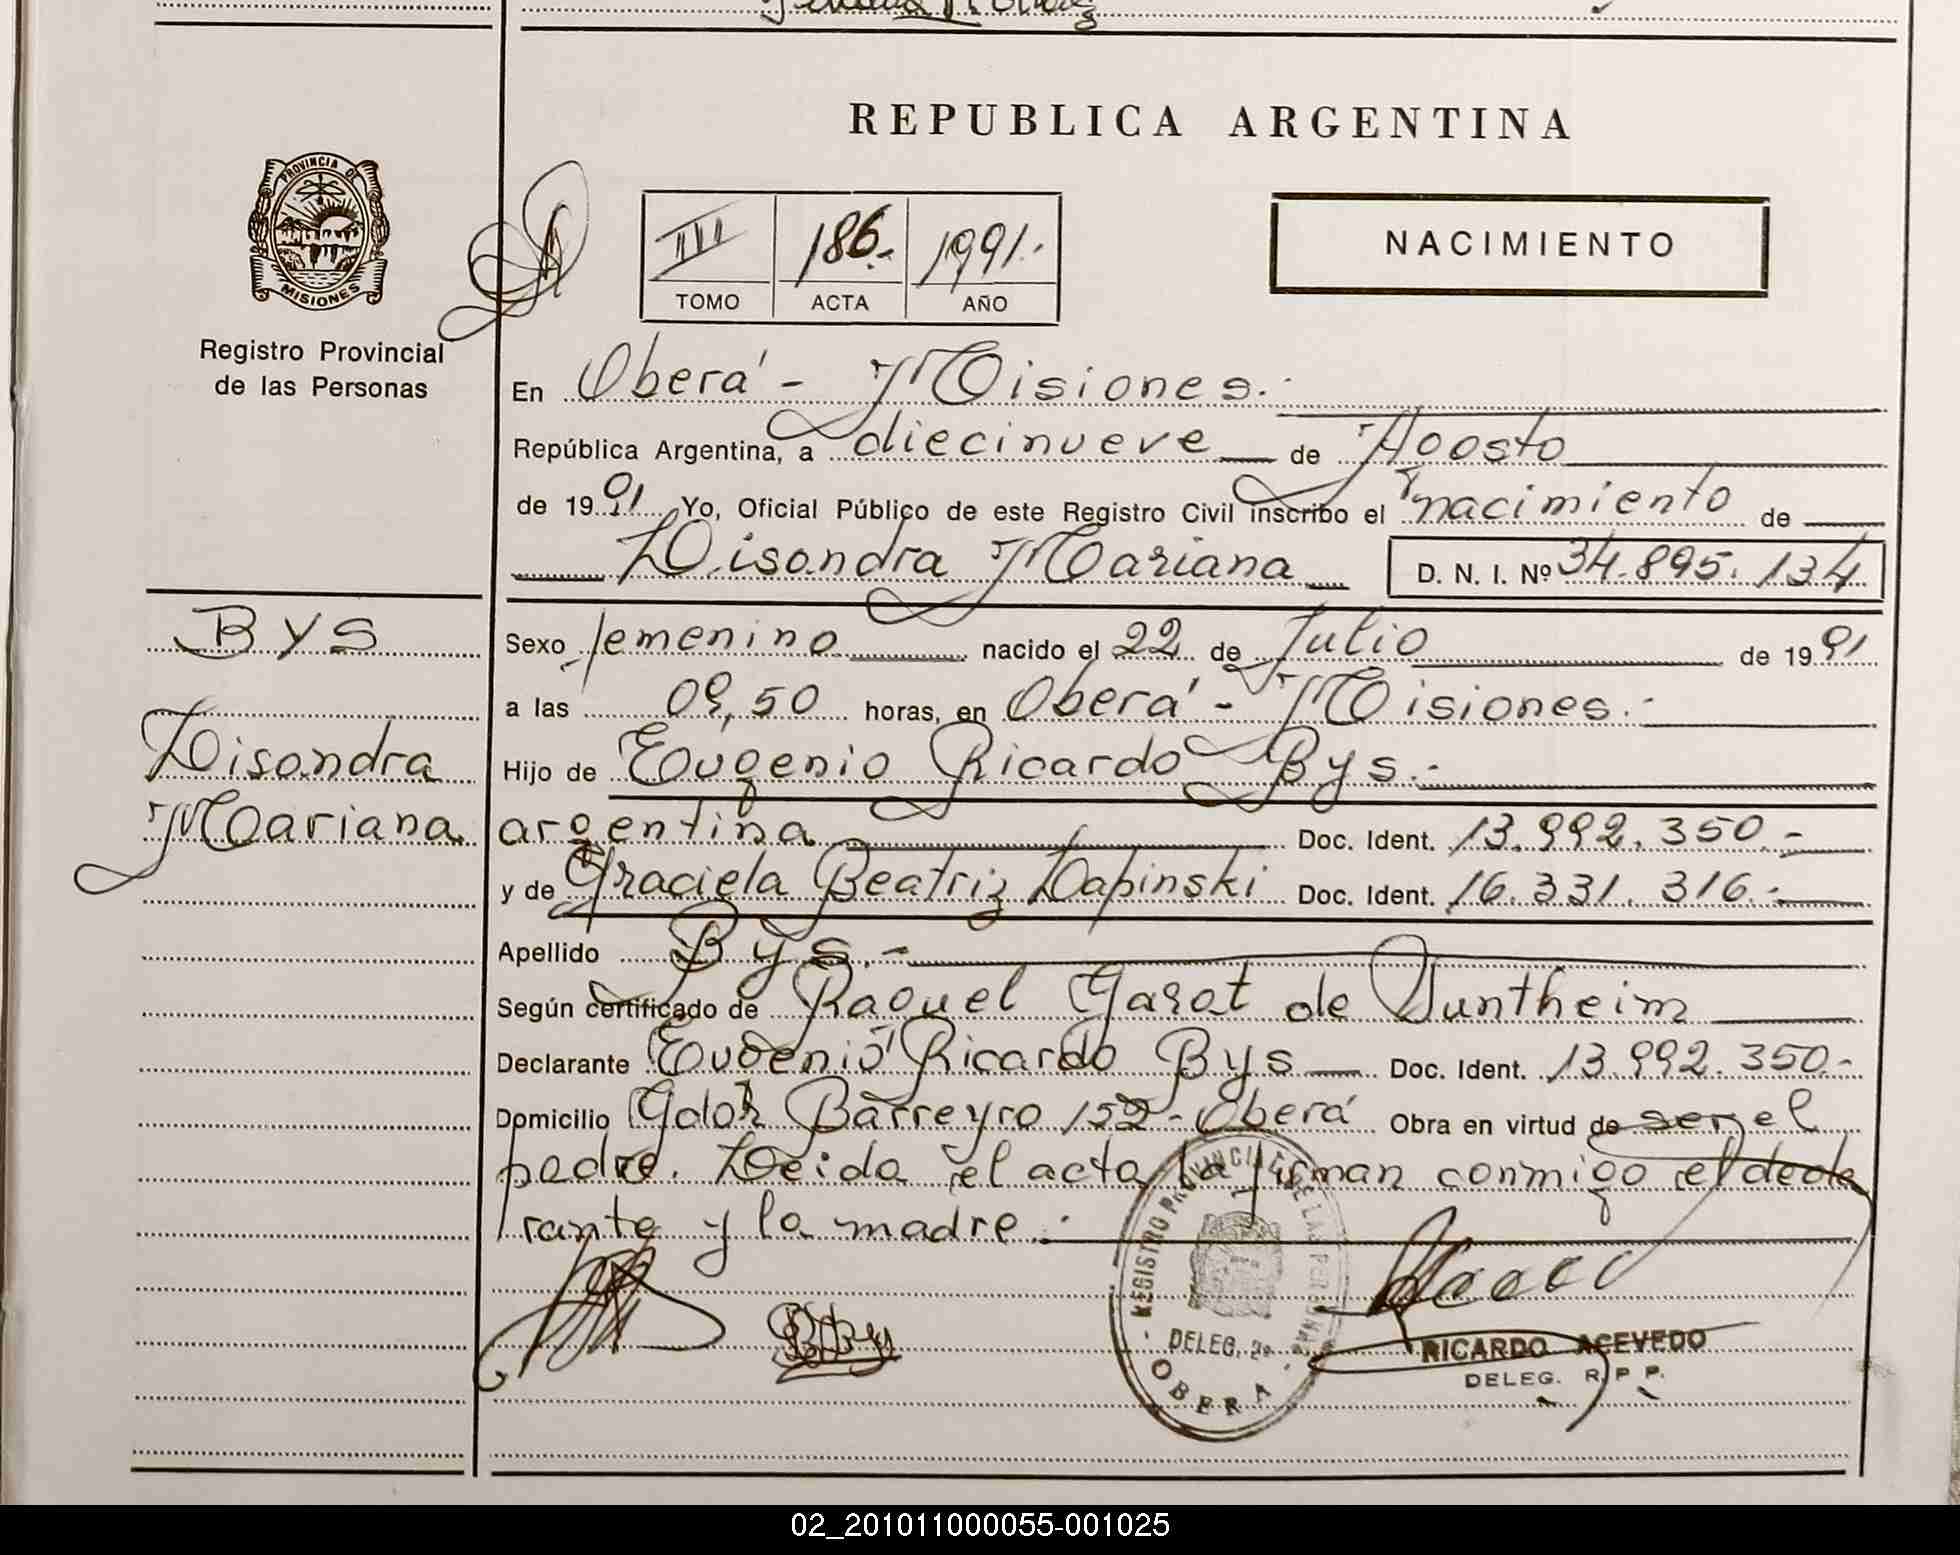 REPUBLICA ARGENTINA
PROVINCIA DE
MISIONES
Registro Provincial
de las Personas
III 186.- 1991.-
TOMO ACTA AÑO
NACIMIENTO
En Oberá - Misiones.-
República Argentina, a diecinueve de Agosto
de 1991 Yo, Oficial Público de este Registro Civil inscribo el nacimiento de
Lisandra Mariana D. N. I. Nº 34.895.134
BYS
Lisandra
Mariana
Sexo femenino nacido el 22 de Julio de 1991
a las 09,50 horas, en Oberá - Misiones.-
Hijo de Eugenio Ricardo Bys.-
argentina Doc. Ident. 13.992.350.-
y de Graciela Beatriz Lapinski Doc. Ident. 16.331.316.-
Apellido Bys.-
Según certificado de Raquel Garat de
Declarante Eugenio Ricardo Bys Doc. Ident. 13.992.350.-
Domicilio Gdor Barreyro 152 - Oberá Obra en virtud de ser el
padre. Leida el acta la firman conmigo el decla
rante y la madre.-
REGISTRO PROVINCIAL DE LAS PERSONAS
DELEG. 2ª
OBERA
RICARDO ACEVEDO
DELEG. R. P. P.
02_201011000055-001025